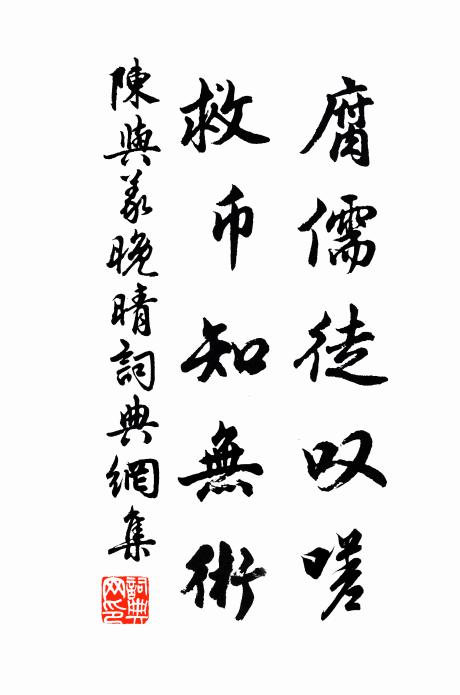 腐儒徒叹嗟
救币知無術
陳與義晚晴詞典網集
詞典网印